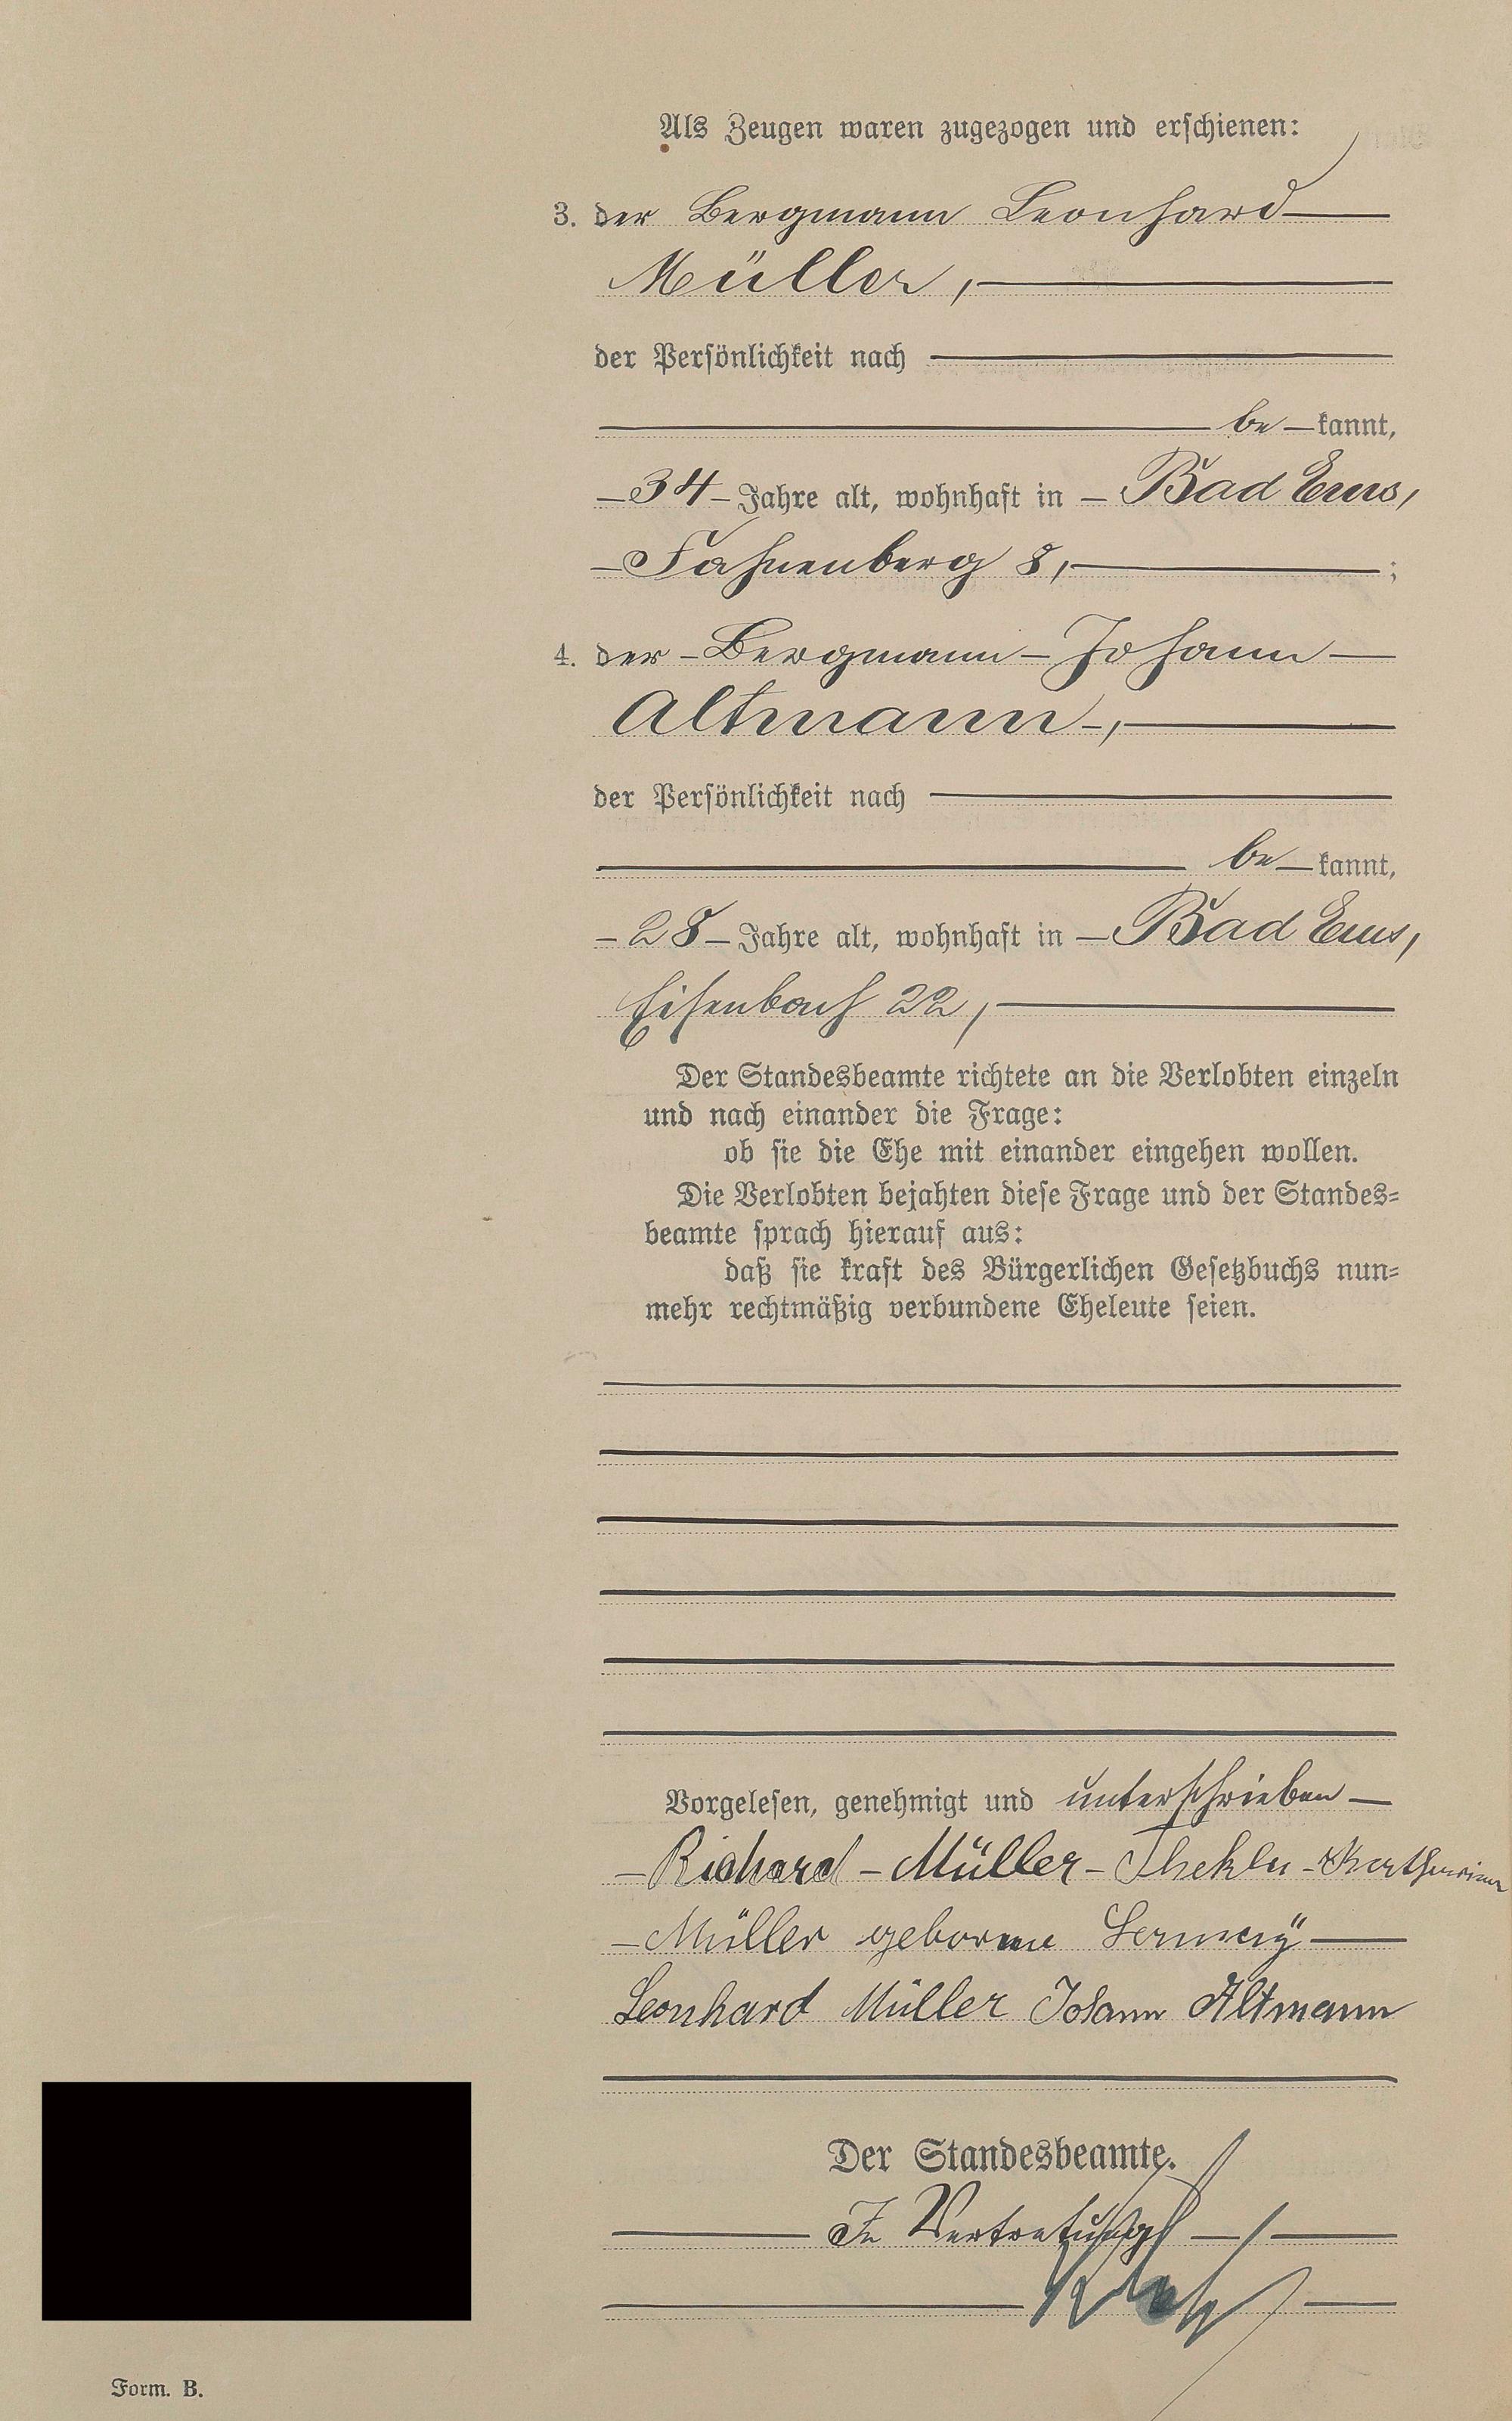 Als Zeugen waren zugezogen und erschienen:
3. der Bergmann Leonhard
Müller,
der Persönlichkeit nach
be kannt,
34 Jahre alt, wohnhaft in Bad Ems,
Fahnenberg 8, ;
4. der Bergmann Johann
Altmann,
der Persönlichkeit nach
be kannt,
28 Jahre alt, wohnhaft in Bad Ems,
Eisenbach 22,
Der Standesbeamte richtete an die Verlobten einzeln
und nach einander die Frage:
ob sie die Ehe mit einander eingehen wollen.
Die Verlobten bejahten diese Frage und der Standes-
beamte sprach hierauf aus:
daß sie kraft des Bürgerlichen Gesetzbuchs nun-
mehr rechtmäßig verbundene Eheleute seien.
Vorgelesen, genehmigt und unterschrieben
Richard Müller Thekla Katharina
Müller geborene
Leonhard Müller Johann Altmann
Der Standesbeamte.
In Vertretung
Form. B.